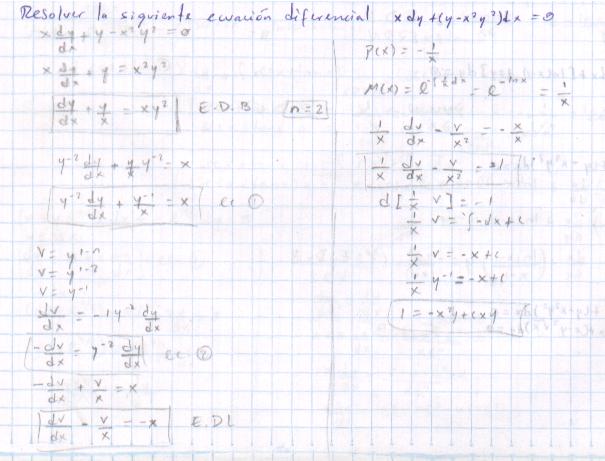 Resolver la siguiente ecuación diferencial x dy + (y - x²y²)dx = 0
x dy/dx + y - x²y² = 0
x dy/dx + y = x²y²
dy/dx + y/x = xy² E.D.B n=2
y⁻² dy/dx + y/x y⁻² = x
y⁻² dy/dx + y⁻¹/x = x ec ①
V = y¹⁻ⁿ
V = y¹⁻²
V = y⁻¹
dv/dx = -1y⁻² dy/dx
-dv/dx = y⁻² dy/dx ec ②
-dv/dx + v/x = x
dv/dx - v/x = -x E.DL
P(x) = -1/x
M(x) = e^-∫1/x dx = e^-lnx = 1/x
1/x dv/dx - v/x² = -x/x
1/x dv/dx - v/x² = -1
d[1/x v] = -1
1/x v = ∫-dx + c
1/x v = -x + c
1/x y⁻¹ = -x + c
1 = -x²y + cxy